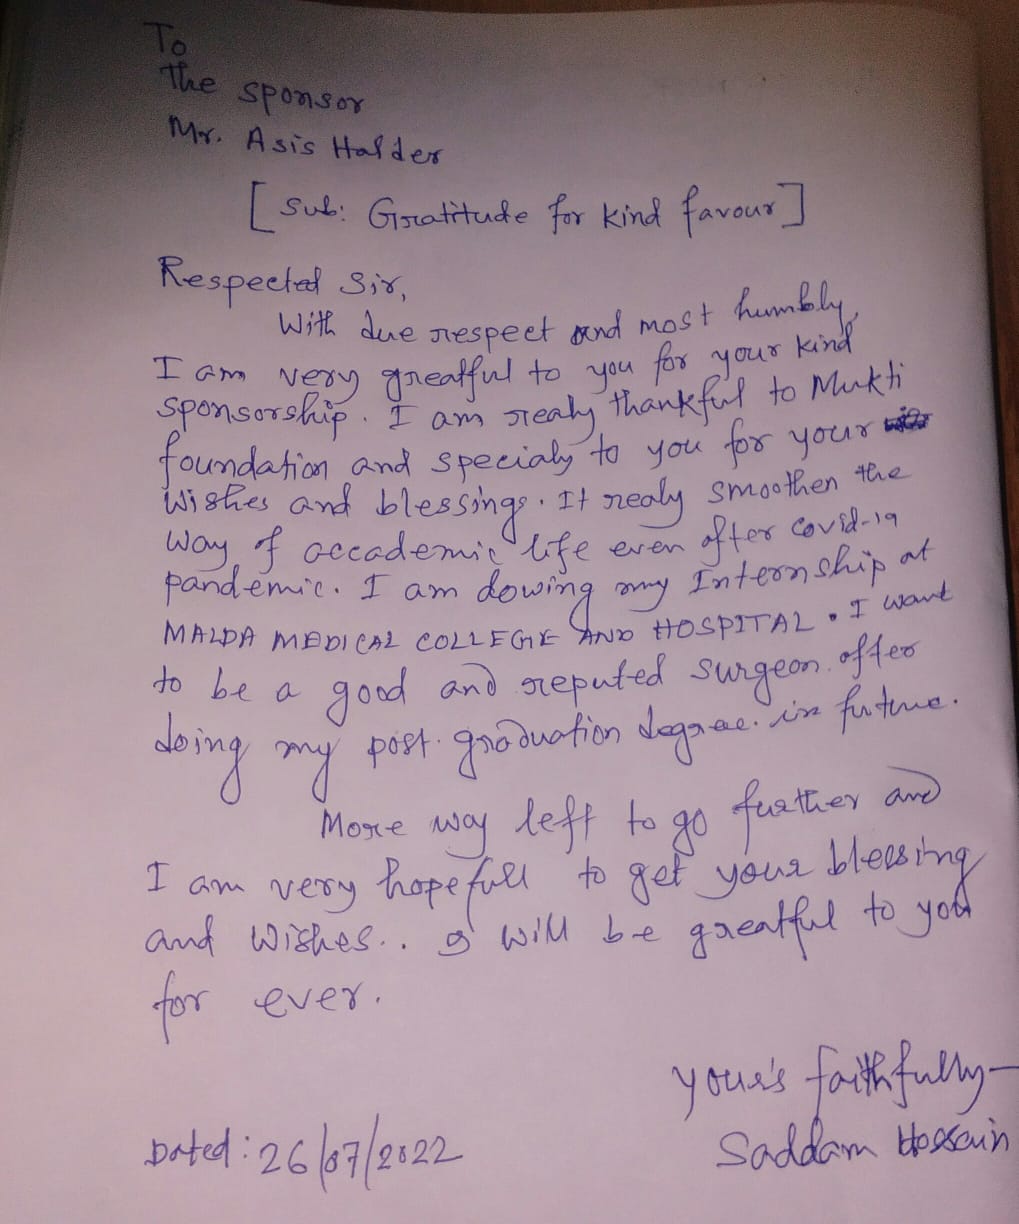 To
The sponsor
Mr. Asis Halder
[ Sub: Gratitude for kind favour ]
Respected Sir,
With due respect and most humbly,
I am very greatful to you for your kind
sponsorship. I am realy thankful to Mukti
foundation and specialy to you for your
wishes and blessings. It realy smoothen the
way of accademic life even after covid-19
pandemic. I am dowing my Internship at
MALDA MEDICAL COLLEGE AND HOSPITAL. I want
to be a good and reputed surgeon after
doing my post graduation degree. in future.
More way left to go further and
I am very hopefull to get your blessing
and wishes.. I will be greatful to you
for ever.
your's faithfully-
Saddam Hossain
Dated: 26/07/2022